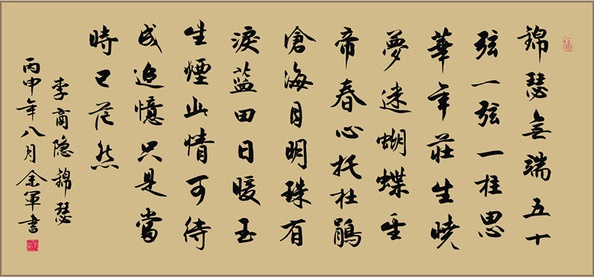 錦瑟無端五十
弦一弦一柱思
華年莊生曉
夢迷蝴蝶望
帝春心托杜鵑
滄海月明珠有
淚藍田日暖玉
生煙此情可待
成追憶只是當
時已茫然
李商隐錦瑟
丙申年八月余軍書